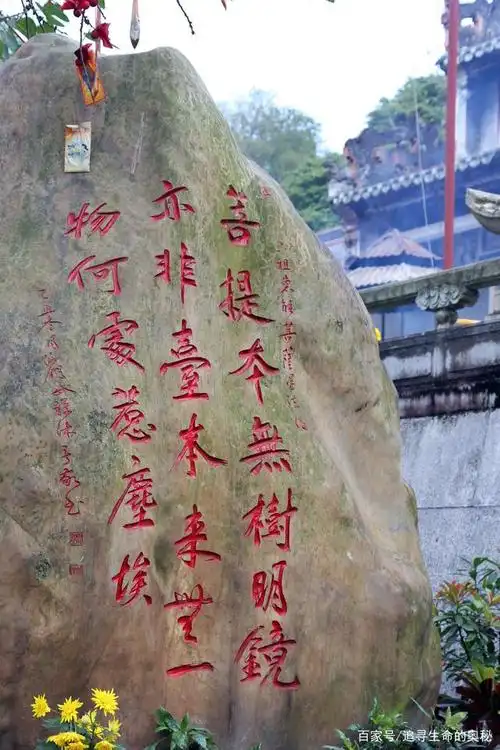 祖惠能菩薩
菩提本無樹明鏡
亦非臺本来無一
物何處惹塵埃
百家号/追寻生命的奥秘